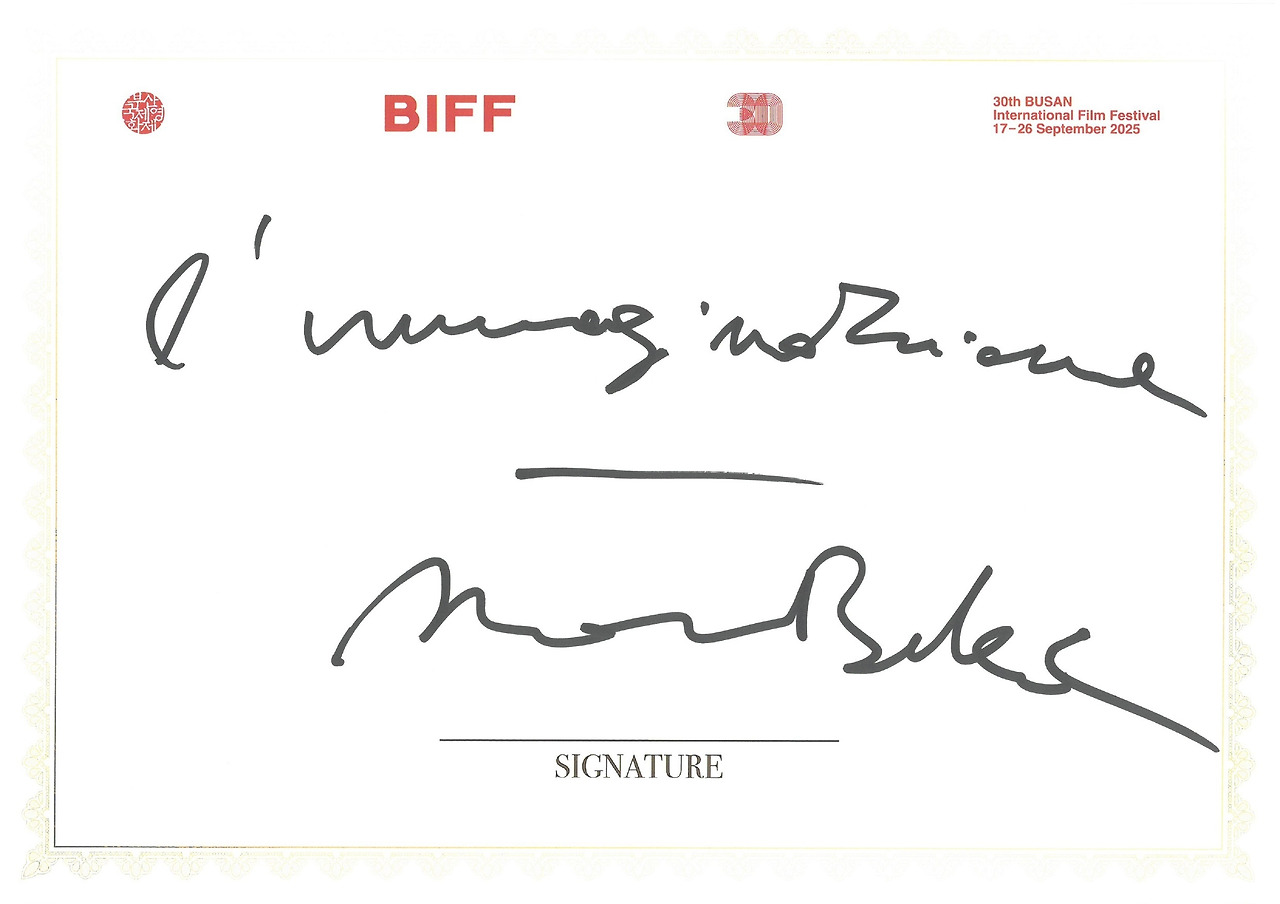 부산국제영화제
BIFF
30
30th BUSAN
International Film Festival
17–26 September 2025
l'immaginazione
SIGNATURE